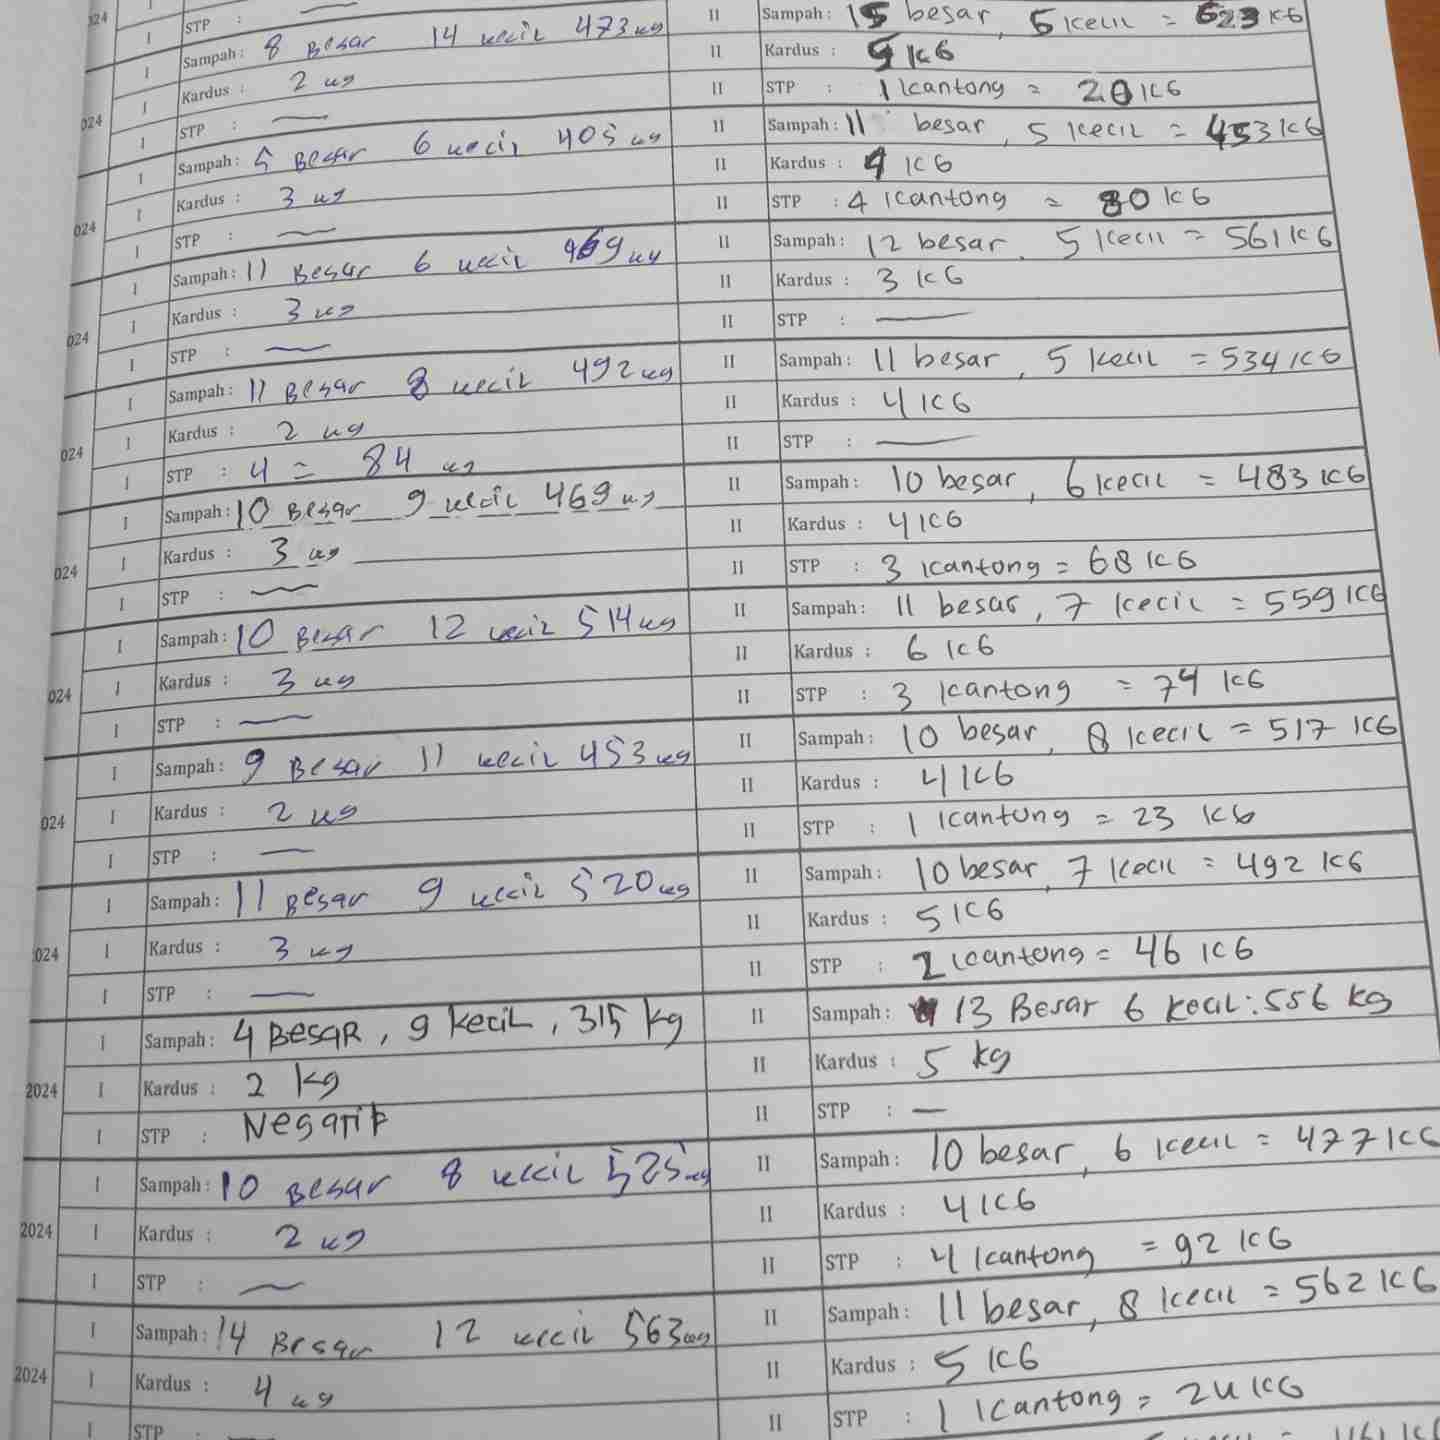 024
I STP : — II Sampah: 15 besar, 5 kecil = 623 KG
I Sampah: 8 Besar 14 kecil 473 kg II Kardus : 9 KG
I Kardus : 2 kg II STP : 1 kantong = 20 KG
024 I STP : — II Sampah: 11 besar, 5 kecil = 453 KG
I Sampah: 5 Besar 6 kecil 405 kg II Kardus : 9 KG
I Kardus : 3 kg II STP : 4 kantong = 80 KG
024 I STP : — II Sampah: 12 besar, 5 kecil = 561 KG
I Sampah: 11 Besar 6 kecil 469 kg II Kardus : 3 KG
I Kardus : 3 kg II STP : —
024 I STP : — II Sampah: 11 besar, 5 kecil = 534 KG
I Sampah: 11 Besar 8 kecil 492 kg II Kardus : 4 KG
I Kardus : 2 kg II STP : —
024 I STP : 4 = 84 kg II Sampah: 10 besar, 6 kecil = 483 KG
I Sampah: 10 Besar 9 kecil 469 kg II Kardus : 4 KG
I Kardus : 3 kg II STP : 3 kantong = 68 KG
024 I STP : — II Sampah: 11 besar, 7 kecil = 559 KG
I Sampah: 10 Besar 12 kecil 514 kg II Kardus : 6 KG
I Kardus : 3 kg II STP : 3 kantong = 74 KG
024 I STP : — II Sampah: 10 besar, 8 kecil = 517 KG
I Sampah: 9 Besar 11 kecil 453 kg II Kardus : 4 KG
I Kardus : 2 kg II STP : 1 kantong = 23 KG
024 I STP : — II Sampah: 10 besar, 7 kecil = 492 KG
I Sampah: 11 Besar 9 kecil 520 kg II Kardus : 5 KG
I Kardus : 3 kg II STP : 2 kantong = 46 KG
024 I STP : — II Sampah: 13 Besar 6 Kecil: 556 kg
I Sampah: 4 BESAR, 9 KeciL, 315 kg II Kardus : 5 kg
2024 I Kardus : 2 kg II STP : —
I STP : Negatif II Sampah: 10 besar, 6 kecil = 477 KG
I Sampah: 10 Besar 8 kecil 525 kg II Kardus : 4 KG
2024 I Kardus : 2 kg II STP : 4 kantong = 92 KG
I STP : — II Sampah: 11 besar, 8 kecil = 562 KG
I Sampah: 14 Besar 12 kecil 563 kg II Kardus : 5 KG
2024 I Kardus : 4 kg II STP : 1 kantong = 24 KG
I STP : —